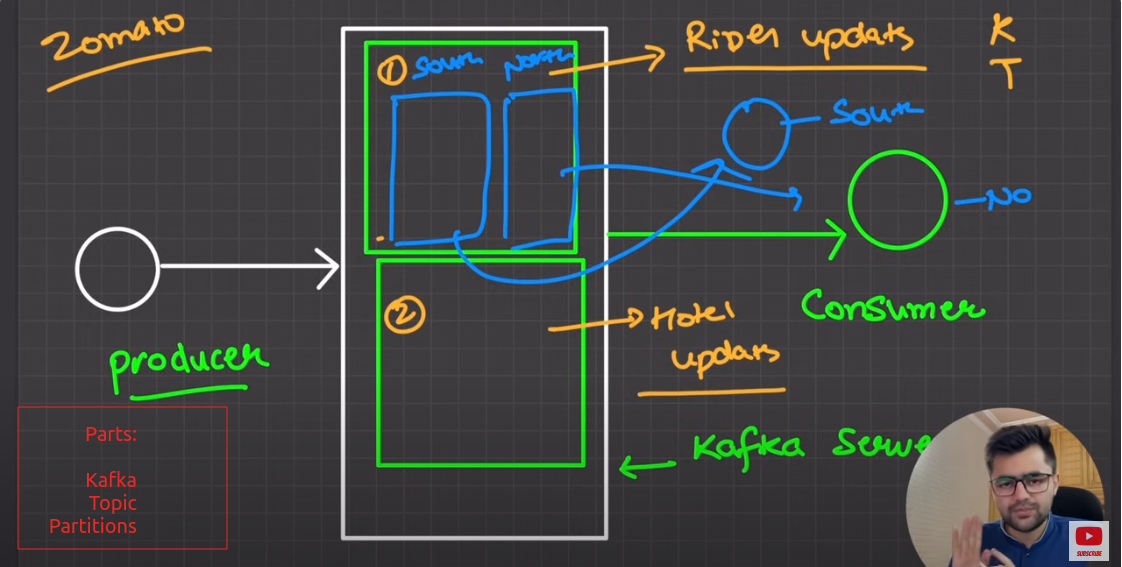 Zomato
① South North
Rider updats
K
T
South
NO
②
Hotel
updats
Consumer
producer
Kafka Serve
Parts:
Kafka
Topic
Partitions
SUBSCRIBE